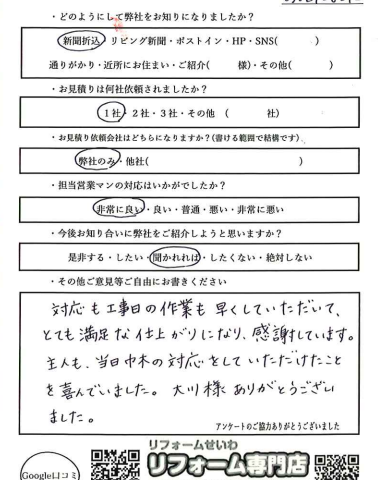 ・どのようにして弊社をお知りになりましたか？
新聞折込・リビング新聞・ポストイン・HP・SNS( )
通りがかり・近所にお住まい・ご紹介( 様)・その他( )
・お見積りは何社依頼されましたか？
1社・2社・3社・その他 ( 社)
・お見積り依頼会社はどちらになりますか？(書ける範囲で結構です)
弊社のみ・他社( )
・担当営業マンの対応はいかがでしたか？
非常に良い・良い・普通・悪い・非常に悪い
・今後お知り合いに弊社をご紹介しようと思いますか？
是非する・したい・聞かれれば・したくない・絶対しない
・その他ご意見等ご自由にお書きください
対応も工事日の作業も早くしていただいて、
とても満足な仕上がりになり、感謝しています。
主人も、当日中木の対応をしていただけたこと
を喜んでいました。大川様ありがとうござい
ました。
アンケートのご協力ありがとうございました
リフォームせいわ
リフォーム専門店
Google口コミ